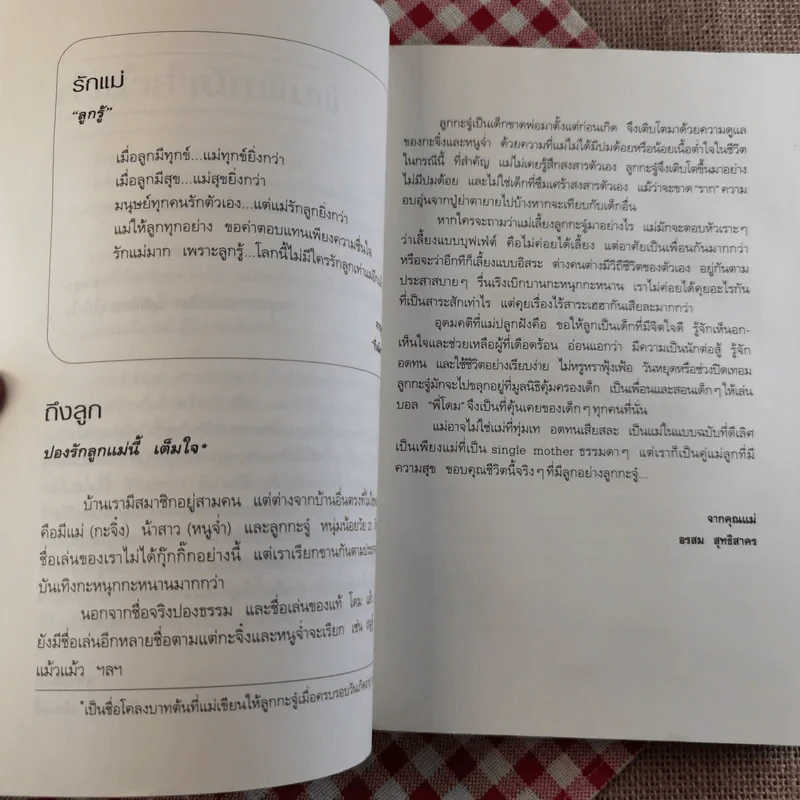 รักแม่
“ลูกรู้”
เมื่อลูกมีทุกข์...แม่ทุกข์ยิ่งกว่า
เมื่อลูกมีสุข...แม่สุขยิ่งกว่า
มนุษย์ทุกคนรักตัวเอง...แต่แม่รักลูกยิ่งกว่า
แม่ให้ลูกทุกอย่าง ขอค่าตอบแทนเพียงความชื่นใจ
รักแม่มาก เพราะลูกรู้...โลกนี้ไม่มีใครรักลูกเท่าแม่
ถึงลูก
ปองรักลูกแม่นี้ เต็มใจ*
บ้านเรามีสมาชิกอยู่สามคน แต่ต่างจากบ้านอื่นตรงที่
คือมีแม่ (กะจิ๋ง) น้าสาว (หนูจ๋ำ) และลูกกะจู๋ หนุ่มน้อยวัย
ชื่อเล่นของเราไม่ได้กุ๊กกิ๊กอย่างนี้ แต่เราเรียกขานกันตาม
บันเทิงกะหนุกกะหนานมากกว่า
นอกจากชื่อจริงปองธรรม และชื่อเล่นของแท้ โดม
ยังมีชื่อเล่นอีกหลายชื่อตามแต่กะจิ๋งและหนูจ๋ำจะเรียก เช่น
แม้วแม้ว ฯลฯ
*เป็นชื่อโคลงบาทต้นที่แม่เขียนให้ลูกกะจู๋เมื่อครบรอบวันเกิด
ลูกกะจู๋เป็นเด็กขาดพ่อมาตั้งแต่ก่อนเกิด จึงเติบโตมาด้วยความดูแล
ของกะจิ๋งและหนูจ๋ำ ด้วยความที่แม่ไม่ได้มีปมด้อยหรือน้อยเนื้อต่ำใจในชีวิต
ในกรณีนี้ ที่สำคัญ แม่ไม่เคยรู้สึกสงสารตัวเอง ลูกกะจู๋จึงเติบโตขึ้นมาอย่าง
ไม่มีปมด้อย และไม่ใช่เด็กที่ซึมเศร้าสงสารตัวเอง แม้ว่าจะขาด “ราก” ความ
อบอุ่นจากปู่ย่าตายายไปบ้างหากจะเทียบกับเด็กอื่น
หากใครจะถามว่าแม่เลี้ยงลูกกะจู๋มาอย่างไร แม่มักจะตอบหัวเราะๆ
ว่าเลี้ยงแบบบุฟเฟต์ คือไม่ค่อยได้เลี้ยง แต่อาศัยเป็นเพื่อนกันมากกว่า
หรือจะว่าอีกทีก็เลี้ยงแบบอิสระ ต่างคนต่างมีวิถีชีวิตของตัวเอง อยู่กันตาม
ประสาสบายๆ รื่นเริงเบิกบานกะหนุกกะหนาน เราไม่ค่อยได้คุยอะไรกัน
ที่เป็นสาระสักเท่าไร แต่คุยเรื่องไร้สาระเฮฮากันเสียละมากกว่า
อุดมคติที่แม่ปลูกฝังคือ ขอให้ลูกเป็นเด็กที่มีจิตใจดี รู้จักเห็นอก-
เห็นใจและช่วยเหลือผู้ที่เดือดร้อน อ่อนแอกว่า มีความเป็นนักต่อสู้ รู้จัก
อดทน และใช้ชีวิตอย่างเรียบง่าย ไม่หรูหราฟุ้งเฟ้อ วันหยุดหรือช่วงปิดเทอม
ลูกกะจู๋มักจะไปขลุกอยู่ที่มูลนิธิคุ้มครองเด็ก เป็นเพื่อนและสอนเด็กๆ ให้เล่น
บอล “พี่โดม” จึงเป็นที่คุ้นเคยของเด็กๆ ทุกคนที่นั่น
แม่อาจไม่ใช่แม่ที่ทุ่มเท อดทนเสียสละ เป็นแม่ในแบบฉบับที่ดีเลิศ
เป็นเพียงแม่ที่เป็น single mother ธรรมดาๆ แต่เราก็เป็นคู่แม่ลูกที่มี
ความสุข ขอบคุณชีวิตนี้จริงๆ ที่มีลูกอย่างลูกกะจู๋...
จากคุณแม่
อรสม สุทธิสาคร